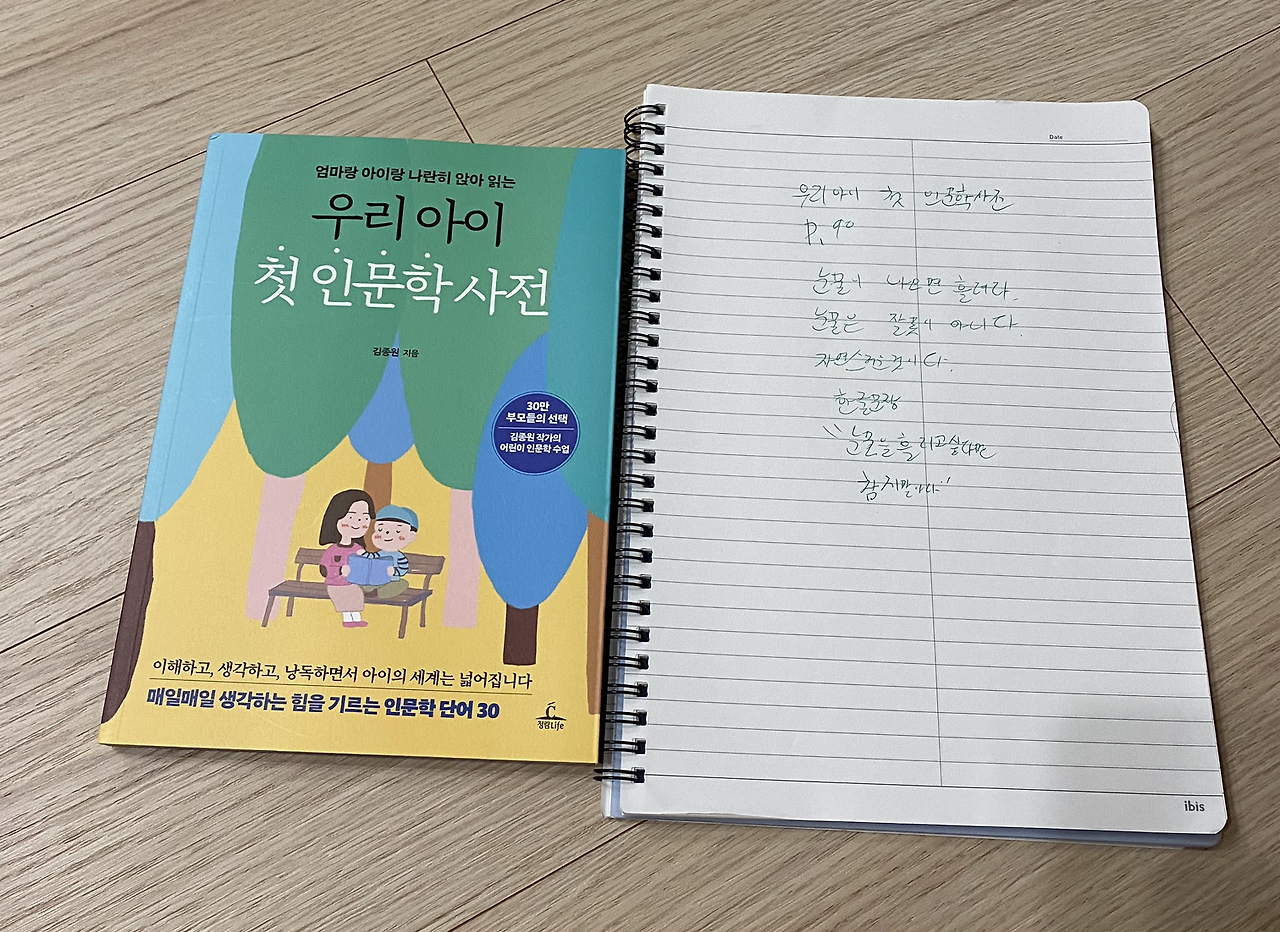 엄마랑 아이랑 나란히 앉아 읽는
우리 아이
첫 인문학 사전
김종원 지음
30만
부모들의 선택
김종원 작가의
어린이 인문학 수업
이해하고, 생각하고, 낭독하면서 아이의 세계는 넓어집니다
매일매일 생각하는 힘을 기르는 인문학 단어 30
청림Life
Date
우리아이 첫 인문학사전
P. 90
눈물이 나오면 흘려라.
눈물은 잘못이 아니다.
자연스러운것이다.
한글문장
"눈물을 흘리고싶다면
참지말아라"
ibis